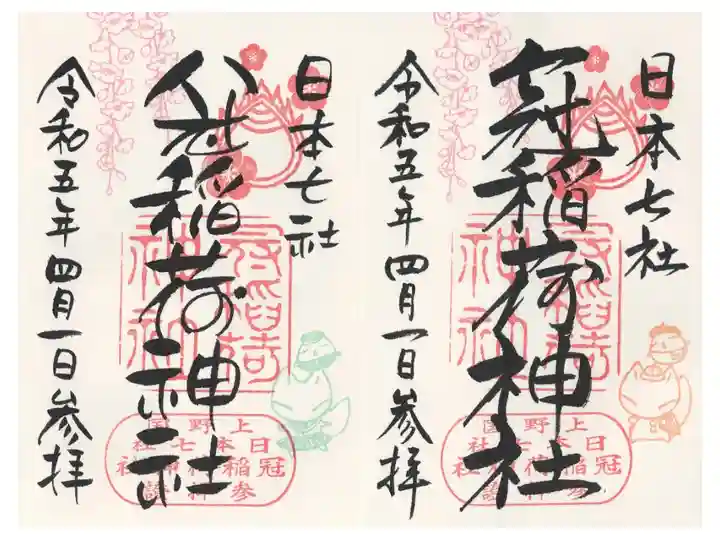 日本七社
冠稲荷神社
令和五年四月一日参拝
冠稲荷神社
上野国
日本七社
冠稲荷神社
日本七社
冠稲荷神社
令和五年四月一日参拝
冠稲荷神社
上野国
日本七社
冠稲荷神社